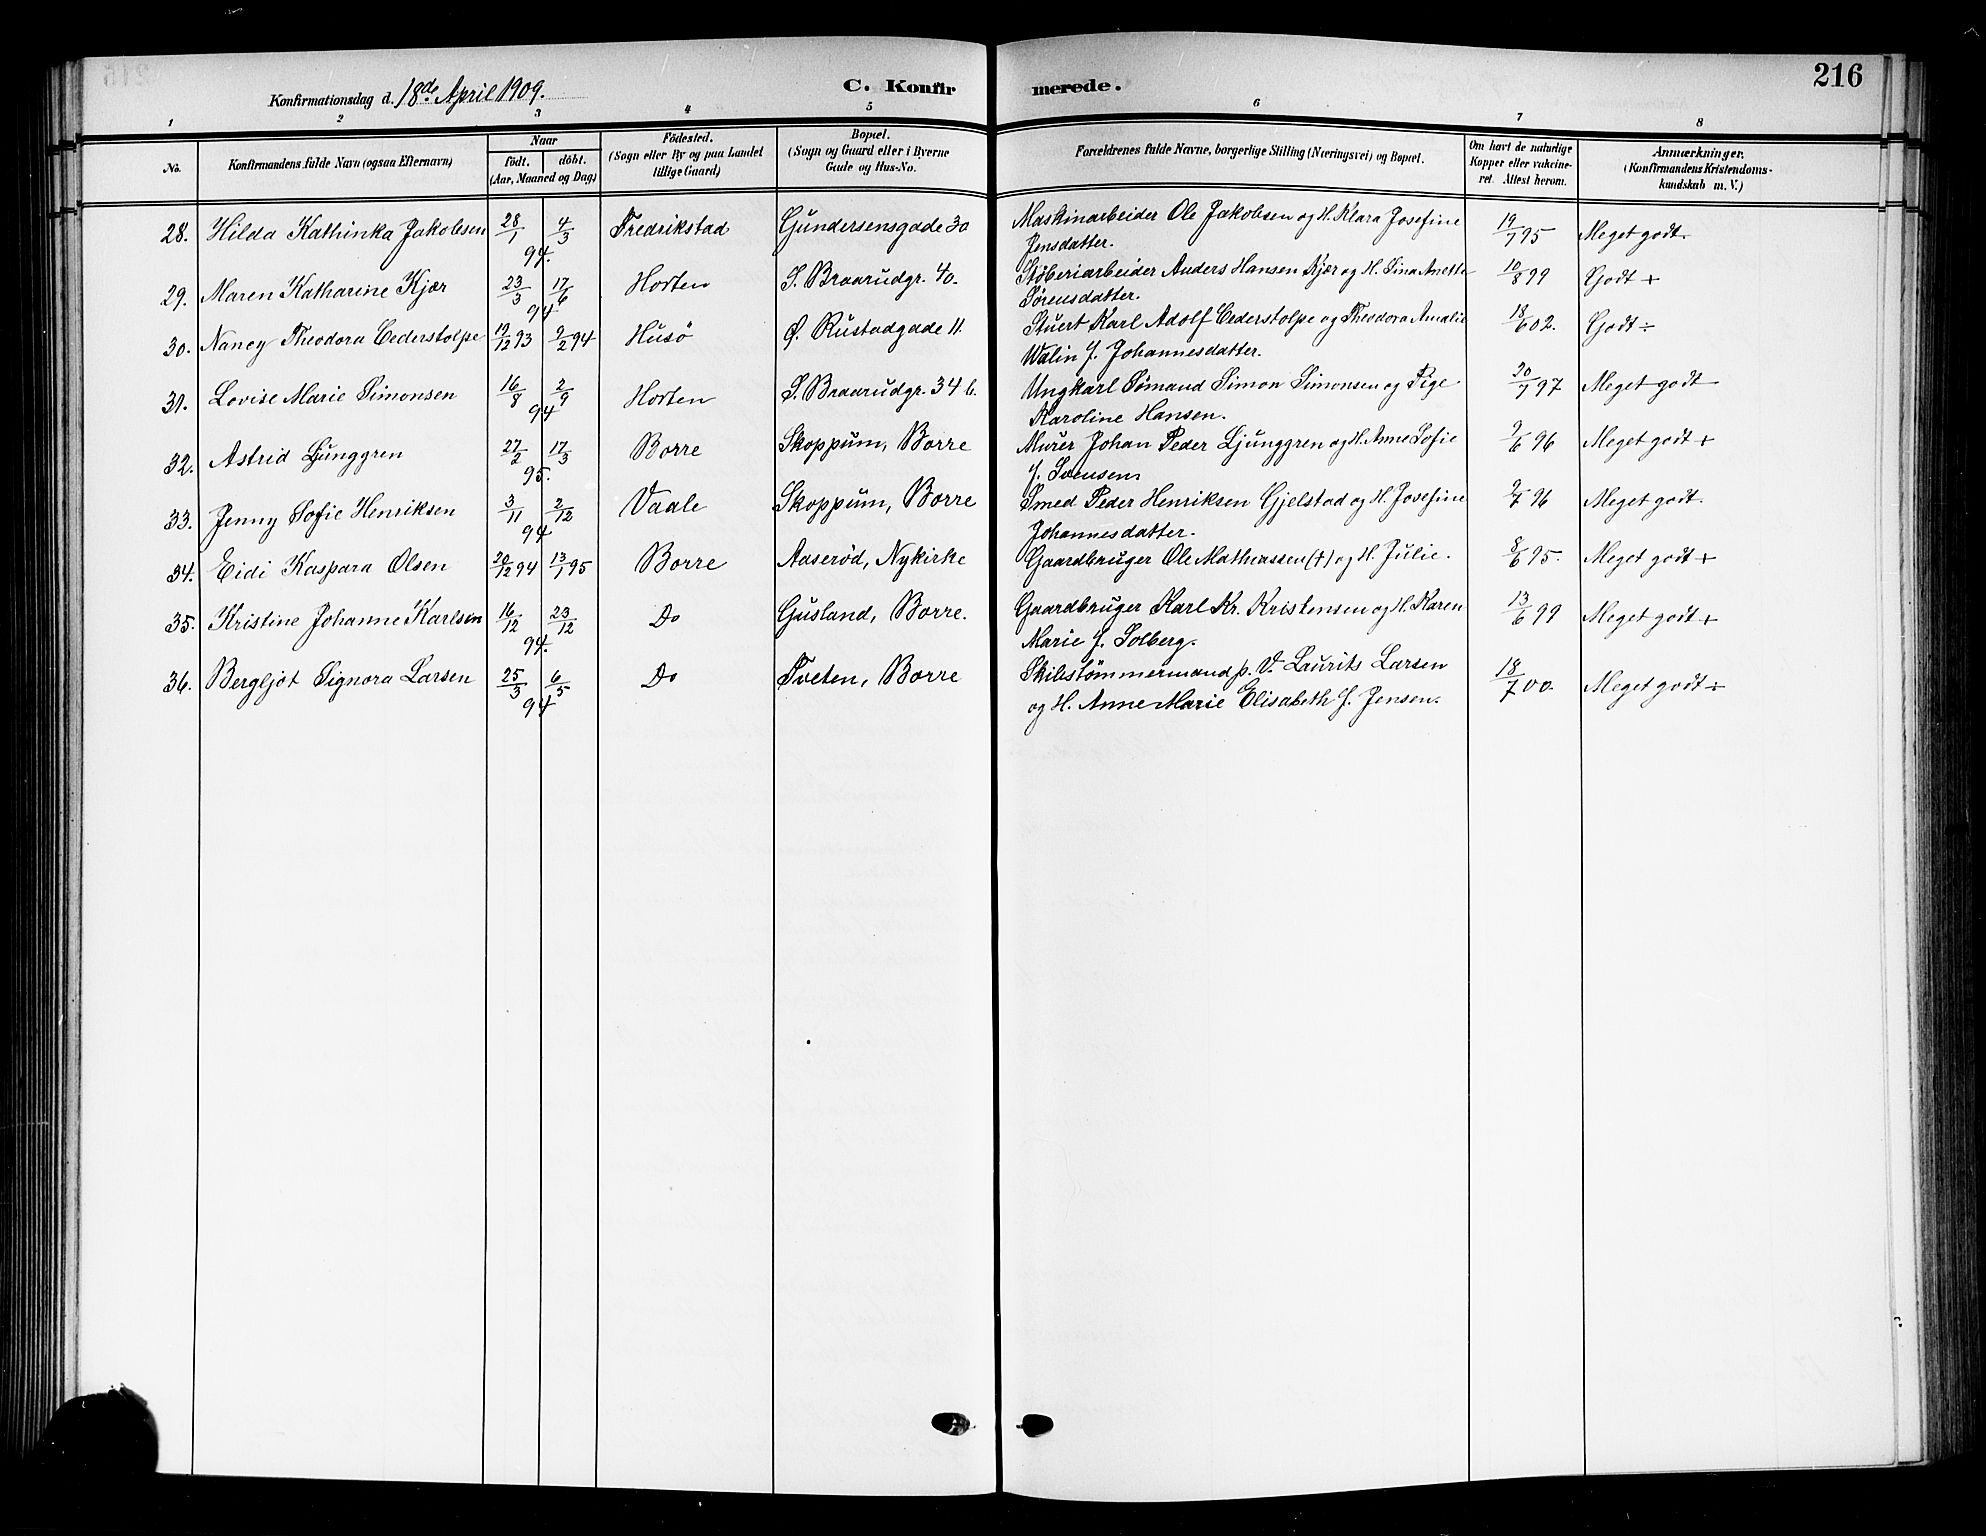 Konfirmationsdag d. 18de April 1909.
C. Konfirmerede.
216
1 2 3 4 5 6 7 8
No.
Konfirmandens fulde Navn (ogsaa Efternavn)
Naar
født. døbt.
(Aar, Maaned og Dag)
Fødested.
(Sogn eller By og paa Landet
tillige Gaard)
Bopæl.
(Sogn og Gaard eller i Byerne
Gade og Hus-No.
Forældrenes fulde Navne, borgerlige Stilling (Næringsvei) og Bopæl.
Om havt de naturlige
Kopper eller vakcine-
ret. Attest herom.
Anmærkninger.
(Konfirmandens Kristendoms-
kundskab m. V.)
28. Hilda Kathinka Jakobsen 28/1 4/3 94. Fredrikstad Gundersensgade 30 Maskinarbeider Ole Jakobsen og H. Klara Josefine 19/7 95 Meget godt.
Jensdatter.
29. Maren Katharine Kjær 23/3 17/6 94 Horten S. Braarudgr. 40. Støberiarbeider Anders Hansen Kjær og H. Sina Anette 10/8 99 Godt +
Sørensdatter.
30. Nancy Theodora Cederstolpe 19/12 93 9/2 94 Husö Ø. Rustadgade 11. Stuert Karl Adolf Cederstolpe og Theodora Amalie 18/6 02. Godt ÷
Walin f. Johannesdatter.
31. Lovise Marie Simonsen 16/8 2/9 94 Horten S. Braarudgr. 34 b. Ungkarl Sømand Simon Simonsen og Pige 20/7 97 Meget godt
Karoline Hansen.
32. Astrid Ljunggren 27/2 17/3 95. Borre Skoppum, Borre Murer Johan Peder Ljunggren og H. Anne Sofie 9/6 96 Meget godt +
f. Svensen
33. Jenny Sofie Henriksen 3/11 2/12 94 Vaale Skoppum, Borre Smed Peder Henriksen Gjelstad og H. Josefine 9/7 96 Meget godt.
Johannesdatter.
34. Eidi Kaspara Olsen 20/12 94 13/1 95 Borre Aaserød, Nykirke Gaardbruger Ole Mathiassen (†) og H. Julie. 8/6 95. Meget godt +
35. Kristine Johanne Karlsen 16/12 23/12 94. Do Gusland, Borre. Gaardbruger Karl Kr. Kristensen og H. Karen 13/6 99 Meget godt +
Marie f. Solberg.
36. Bergljot Signora Larsen 25/3 6/5 94 Do Tveten, Borre Skibstømmermand p. V. Laurits Larsen 18/7 00. Meget godt ÷
og H. Anne Marie Elisabeth f. Jensen.